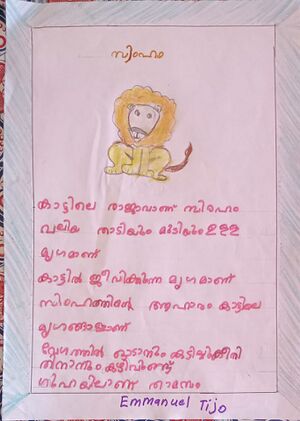 സിംഹം
കാട്ടിലെ രാജാവാണ് സിംഹം
വലിയ താടിയും മുടിയും ഉള്ള
മൃഗമാണ്
കാട്ടിൽ ജീവിക്കുന്ന മൃഗമാണ്
സിംഹത്തിന്റെ ആഹാരം കാട്ടിലെ
മൃഗങ്ങളാണ്
വേഗത്തിൽ ഓടാനും
തിന്നാനും കഴിവുണ്ട്
ഗുഹയിലാണ് താമസം
Emmanuel Tijo